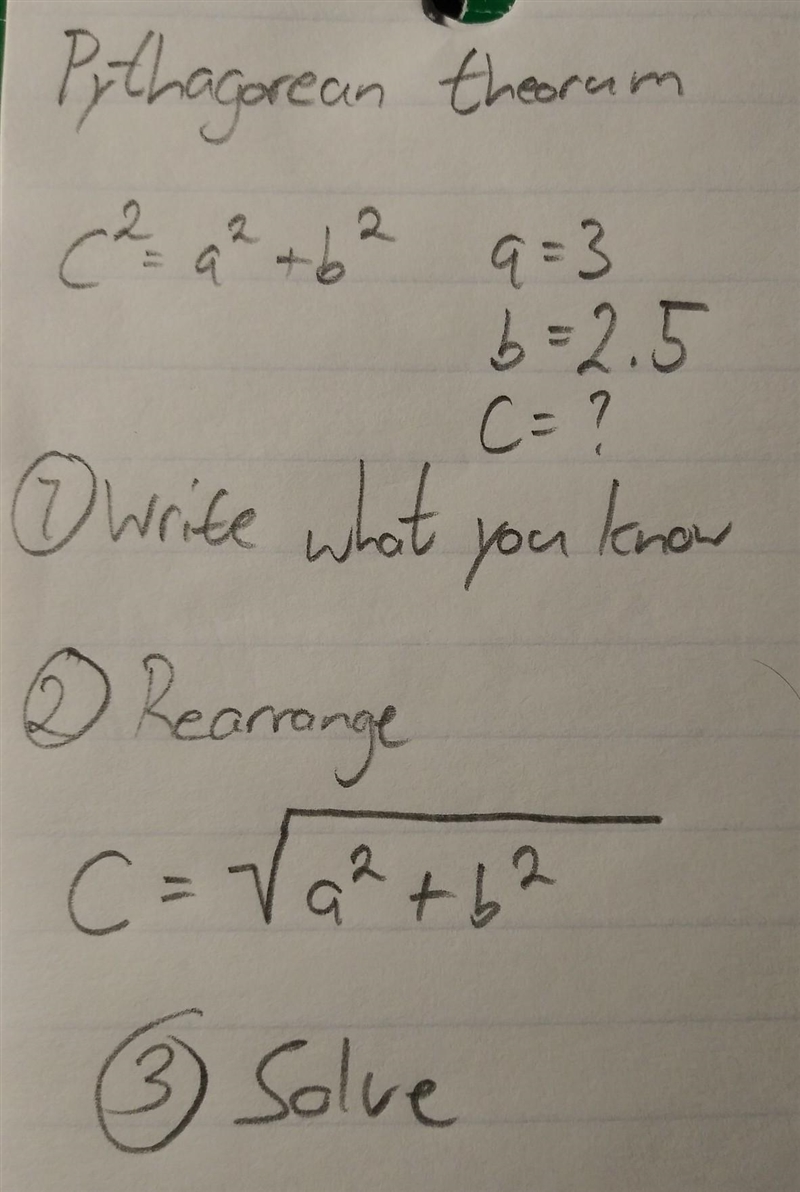 Pythagorean theorum
c² = a² + b² a = 3
b = 2.5
c = ?
① Write what you know
② Rearrange
C = √a² + b²
③ Solve